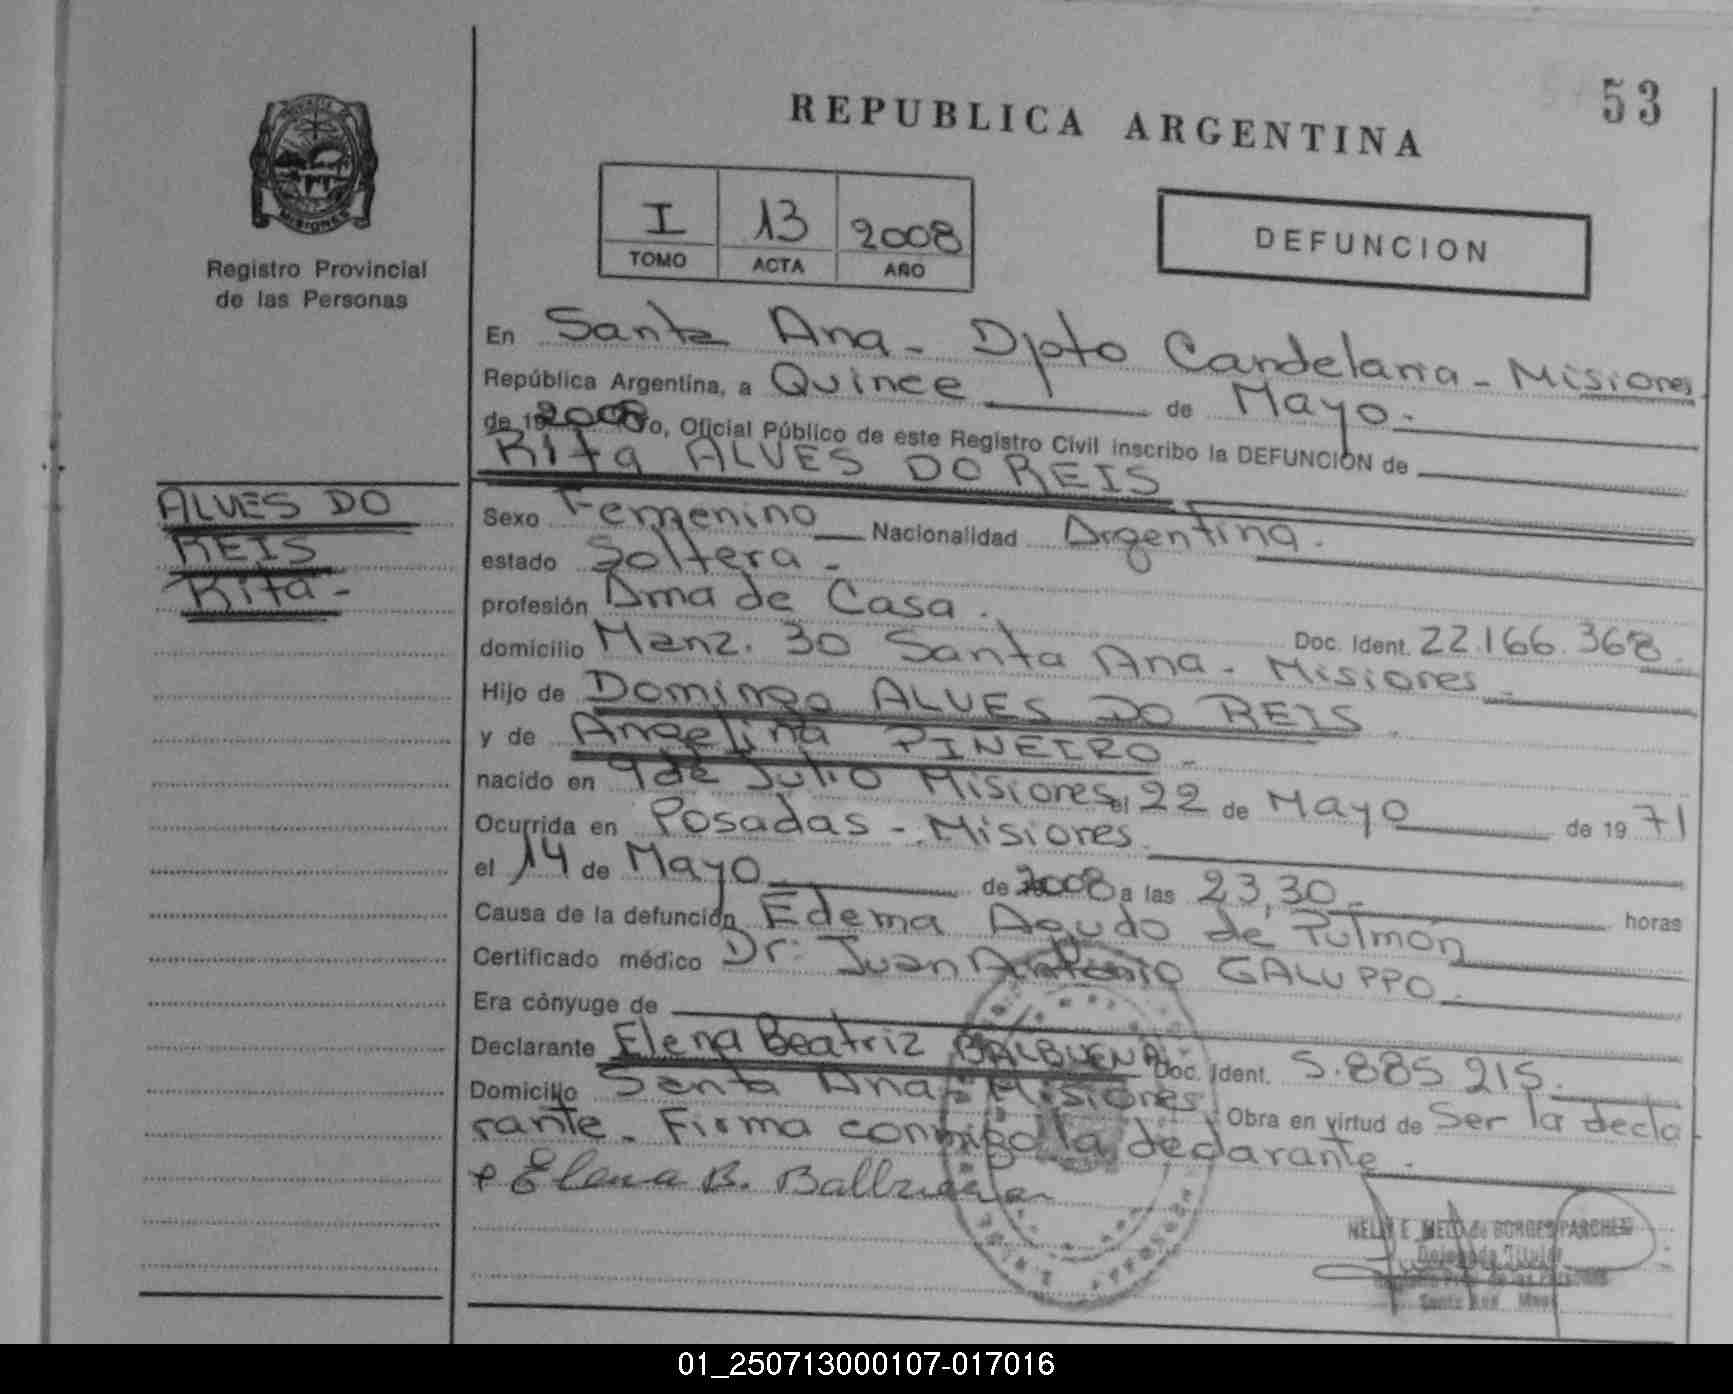 53
REPUBLICA ARGENTINA
MISIONES
Registro Provincial
de las Personas
I 13 2008
TOMO ACTA AÑO
DEFUNCION
En Santa Ana - Dpto Candelaria - Misiones
República Argentina, a Quince de Mayo.
de 19 2008 yo, Oficial Público de este Registro Civil inscribo la DEFUNCION de
Rita ALVES DO REIS
ALVES DO
REIS
Rita -
Sexo Femenino Nacionalidad Argentina.
estado Soltera -
profesión Ama de Casa. Doc. Ident. 22.166.368.
domicilio Manz. 30 Santa Ana - Misiones
Hijo de Domingo ALVES DO REIS.
y de Angelina PINEIRO -
nacido en 9 de Julio Misiones el 22 de Mayo de 1971
Ocurrida en Posadas - Misiones
el 14 de Mayo de 2008 a las 23,30 horas
Causa de la defunción Edema Agudo de Pulmón
Certificado médico Dr: Juan Antonio GALUPPO.
Era cónyuge de
Declarante Elena Beatriz BALBUENA Doc. Ident. 5.885.215.
Domicilio Santa Ana - Misiones. Obra en virtud de Ser la decla
rante. Firma conmigo la declarante.
Elena B. Balbuena
NELLY E. MELO de BORGES PARCHEN
Delegada Titular
Santa Ana Mnes
01_250713000107-017016